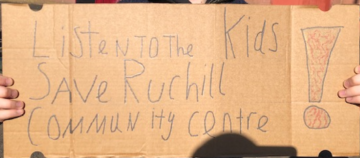 LisTeNTOThe Kids !
SAVe RucHill
COMMUNity CeNtre